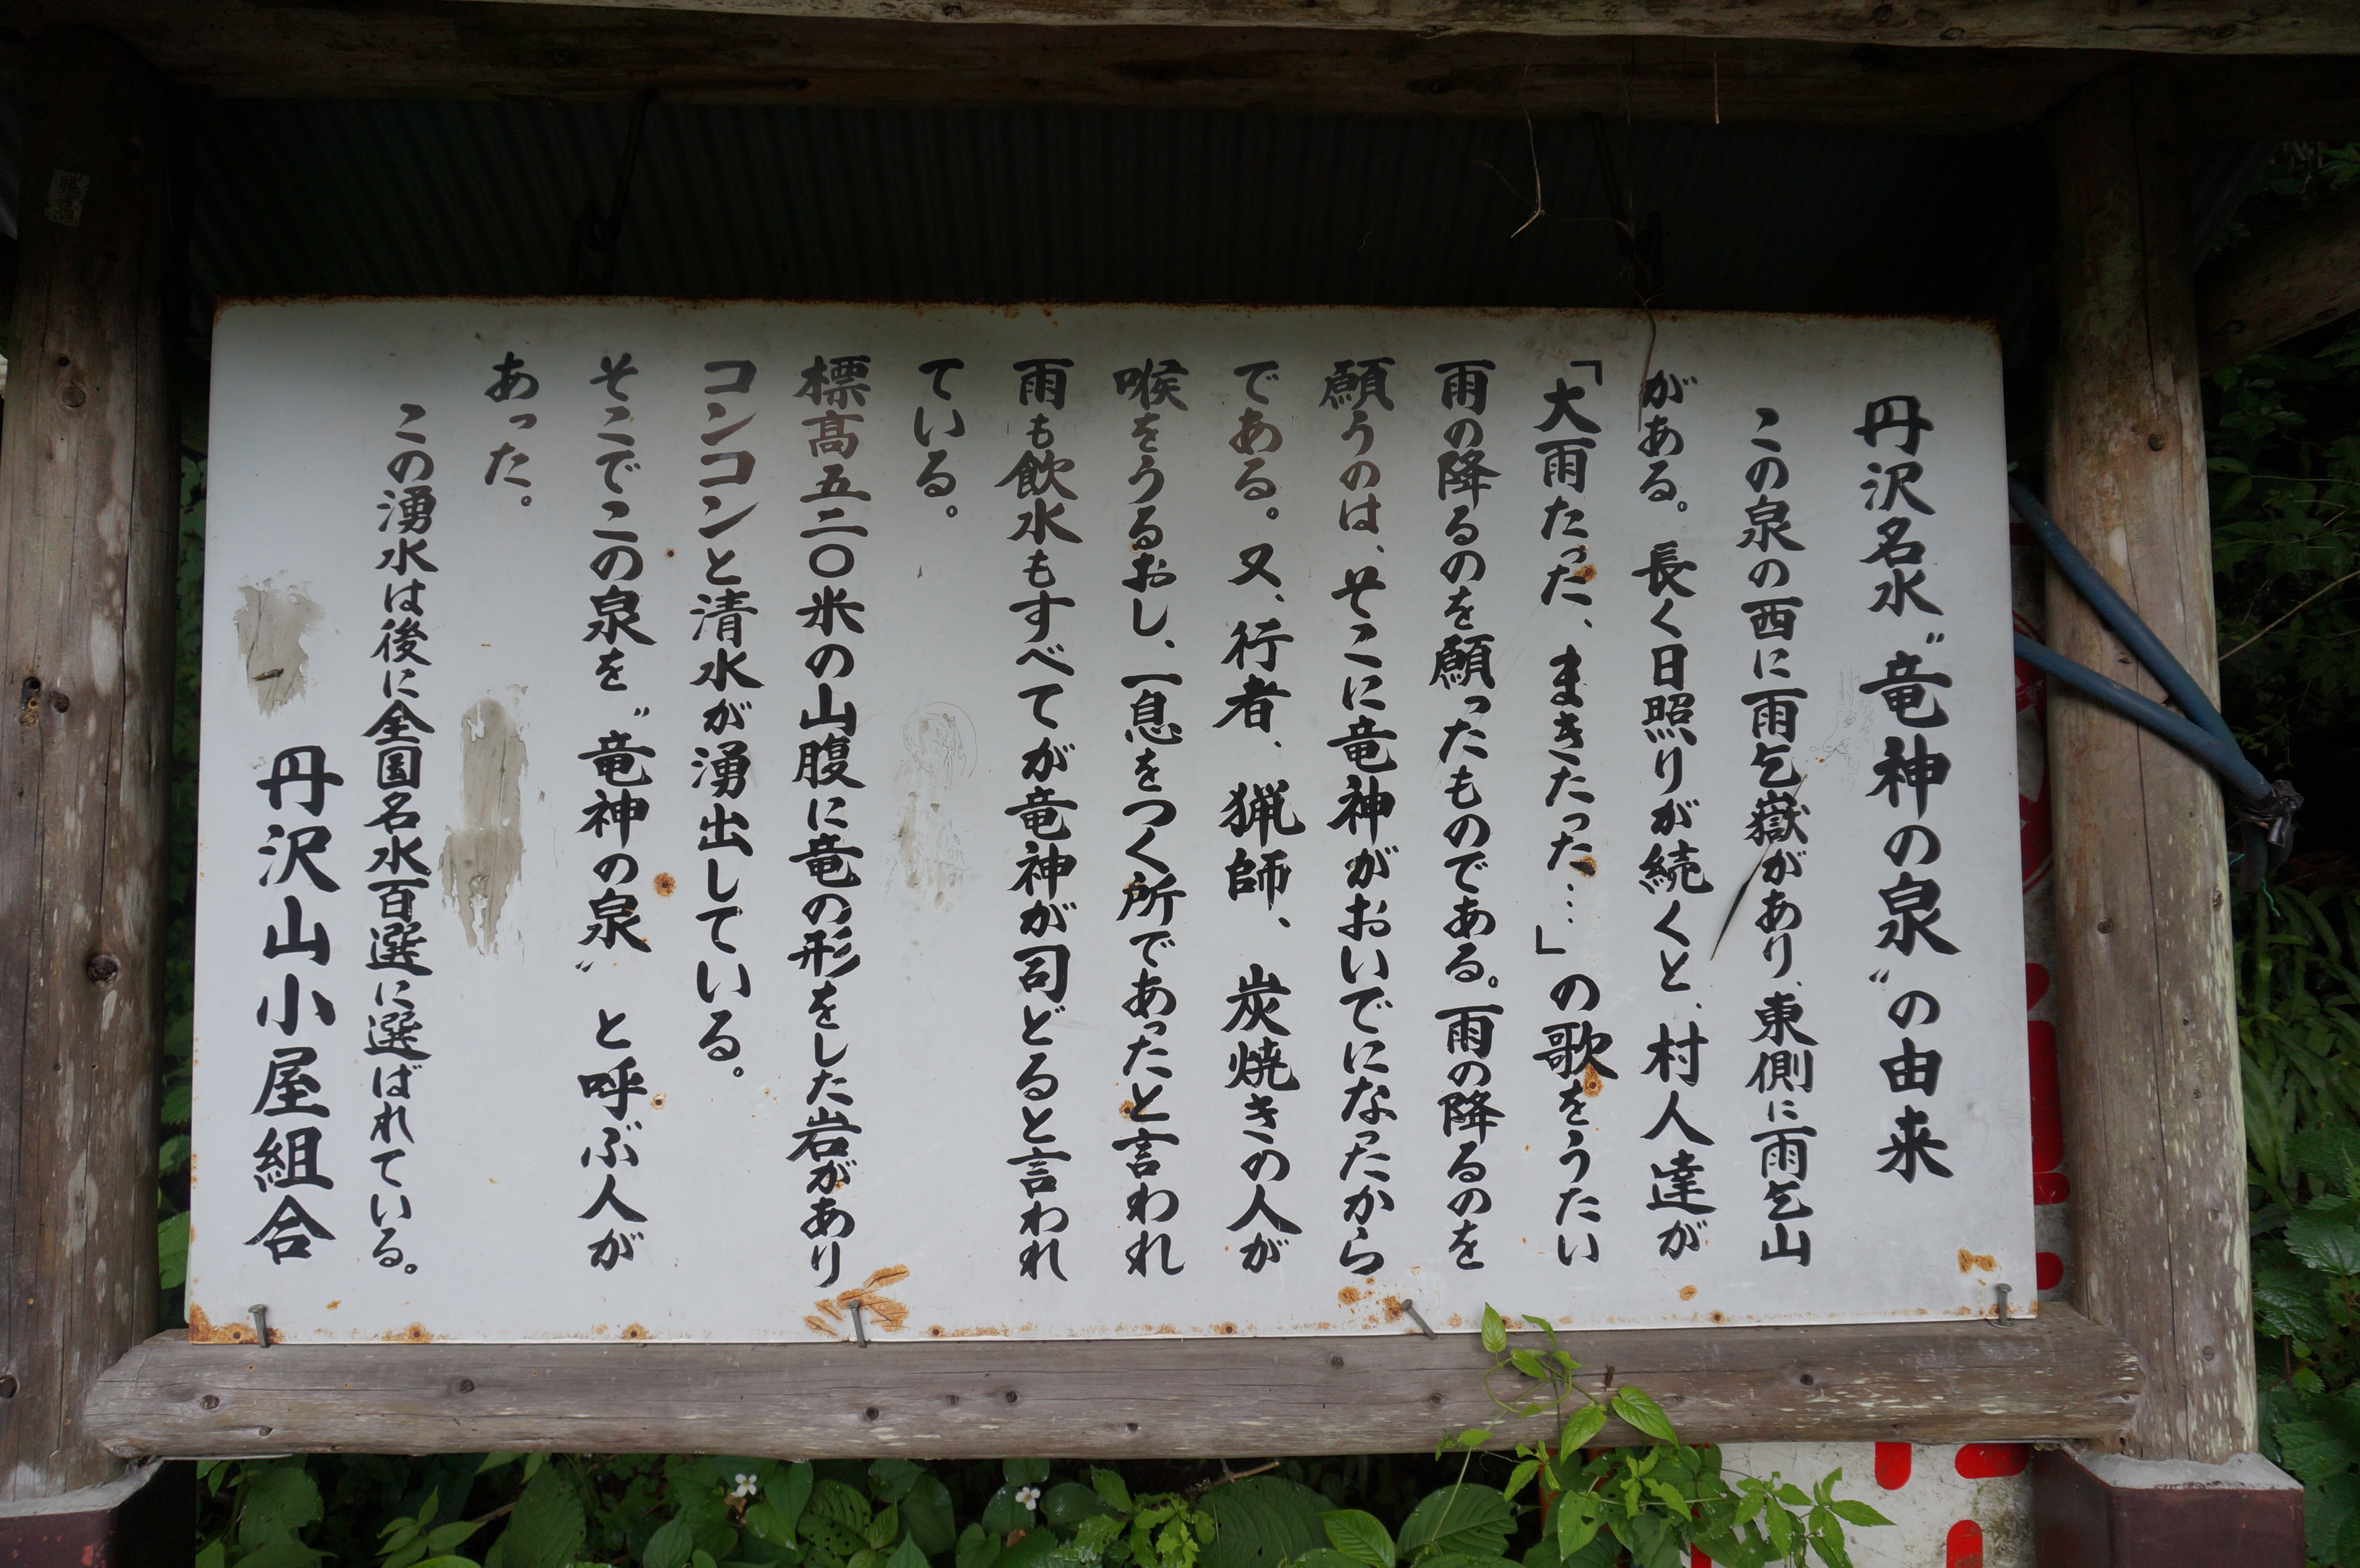 丹沢名水〝竜神の泉〟の由来
この泉の西に雨乞嶽があり、東側に雨乞山
がある。長く日照りが続くと、村人達が
「大雨たった、またきたった…」の歌をうたい
雨の降るのを願ったものである。雨の降るのを
願うのは、そこに竜神がおいでになったから
である。又、行者、猟師、炭焼きの人が
喉をうるおし、一息をつく所であったと言われ
雨も飲水もすべてが竜神が司どると言われ
ている。
標高五二〇米の山腹に竜の形をした岩があり
コンコンと清水が湧出している。
そこでこの泉を〝竜神の泉〟と呼ぶ人が
あった。
この湧水は後に全国名水百選に選ばれている。
丹沢山小屋組合